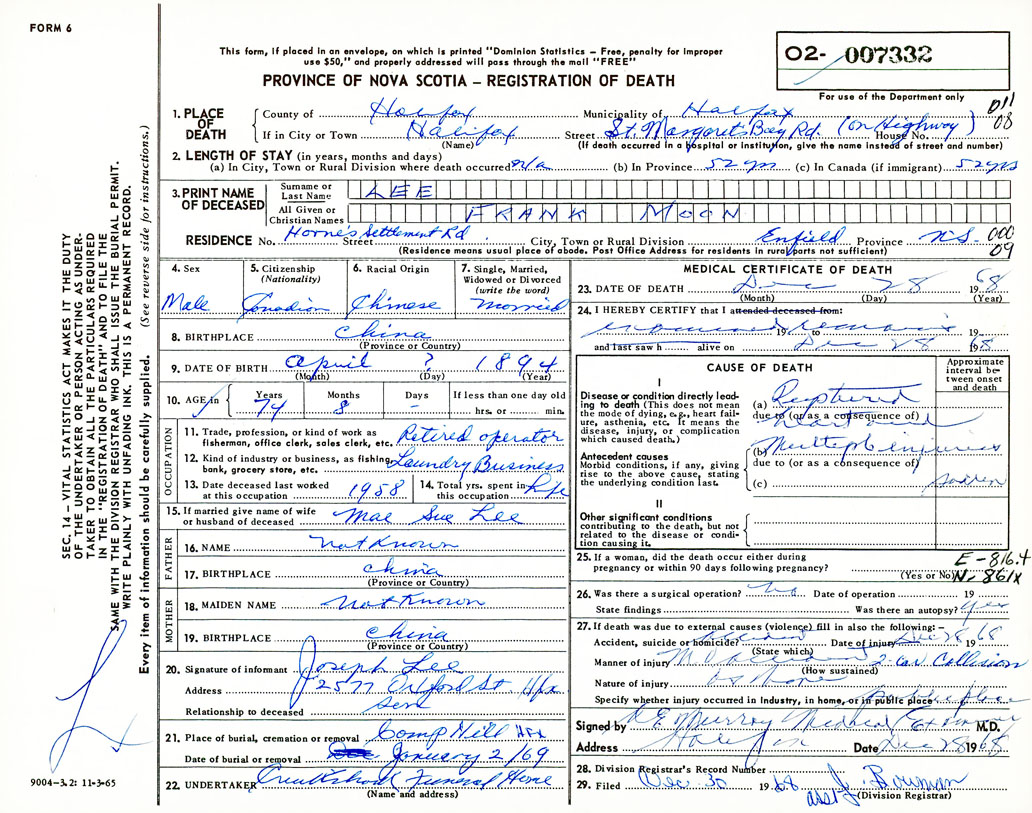 FORM 6
This form, if placed in an envelope, on which is printed "Dominion Statistics – Free, penalty for improper
use $50," and properly addressed will pass through the mail "FREE"
PROVINCE OF NOVA SCOTIA – REGISTRATION OF DEATH
O2- 007332
For use of the Department only
SEC. 14 – VITAL STATISTICS ACT MAKES IT THE DUTY
OF THE UNDERTAKER OR PERSON ACTING AS UNDER-
TAKER TO OBTAIN ALL THE PARTICULARS REQUIRED
IN THE "REGISTRATION OF DEATH" AND TO FILE THE
SAME WITH THE DIVISION REGISTRAR WHO SHALL ISSUE THE BURIAL PERMIT.
WRITE PLAINLY WITH UNFADING INK. THIS IS A PERMANENT RECORD.
Every item of information should be carefully supplied. (See reverse side for instructions.)
1. PLACE OF DEATH
County of Halifax Municipality of Halifax 011
If in City or Town Halifax Street St. Margaret's Bay Rd. (on Highway) House No. 08
(Name) (If death occurred in a hospital or institution, give the name instead of street and number)
2. LENGTH OF STAY (in years, months and days)
(a) In City, Town or Rural Division where death occurred n/a (b) In Province 52 yrs (c) In Canada (if immigrant) 52 yrs
3. PRINT NAME OF DECEASED
Surname or Last Name LEE
All Given or Christian Names FRANK MOON
RESIDENCE No. Horne's Settlement Rd Street City, Town or Rural Division Enfield Province N.S. 000
(Residence means usual place of abode. Post Office Address for residents in rural parts not sufficient) 09
4. Sex Male
5. Citizenship (Nationality) Canadian
6. Racial Origin Chinese
7. Single, Married, Widowed or Divorced (write the word) Married
8. BIRTHPLACE China
(Province or Country)
9. DATE OF BIRTH April ? 1894
(Month) (Day) (Year)
10. AGE in Years 74 Months 8 Days - If less than one day old hrs. or min.
OCCUPATION
11. Trade, profession, or kind of work as fisherman, office clerk, sales clerk, etc. Retired operator
12. Kind of industry or business, as fishing, bank, grocery store, etc. Laundry Business
13. Date deceased last worked at this occupation 1958 14. Total yrs. spent in this occupation Life
15. If married give name of wife or husband of deceased Mae Sue Lee
FATHER
16. NAME Not Known
17. BIRTHPLACE China
(Province or Country)
MOTHER
18. MAIDEN NAME Not Known
19. BIRTHPLACE China
(Province or Country)
20. Signature of informant Joseph Lee
Address 2577 Oxford St Hfx
Relationship to deceased Son
21. Place of burial, cremation or removal Camp Hill Hfx
Date of burial or removal January 2/69
22. UNDERTAKER Cruikshank Funeral Home
(Name and address)
9004-3.2: 11-3-65
MEDICAL CERTIFICATE OF DEATH
23. DATE OF DEATH Dec 28 1968
(Month) (Day) (Year)
24. I HEREBY CERTIFY that I attended deceased from:
examined 19 to remains 19
and last saw h alive on Dec 28 1968
CAUSE OF DEATH
Approximate interval between onset and death
I
Disease or condition directly leading to death (This does not mean the mode of dying, e.g., heart failure, asthenia, etc. It means the disease, injury, or complication which caused death.)
(a) Ruptured
due to (or as a consequence of) heart
Antecedent causes
Morbid conditions, if any, giving rise to the above cause, stating the underlying condition last.
(b) Multiple injuries
due to (or as a consequence of)
(c) sudden
II
Other significant conditions contributing to the death, but not related to the disease or condition causing it.
25. If a woman, did the death occur either during pregnancy or within 90 days following pregnancy? (Yes or No) E-816.4
N-861X
26. Was there a surgical operation? No Date of operation 19
State findings Was there an autopsy? yes
27. If death was due to external causes (violence) fill in also the following: –
Accident, suicide or homicide? Accident Date of injury Dec 28 1968
(State which)
Manner of injury M.V. Accident 2 car Collision
(How sustained)
Nature of injury as above
Specify whether injury occurred in industry, in home, or in public place Public place
Signed by R E Murray Medical Examiner M.D.
Address Halifax Date Dec 28 1968
28. Division Registrar's Record Number
29. Filed Dec. 30 1968 asst J. Bowman
(Division Registrar)